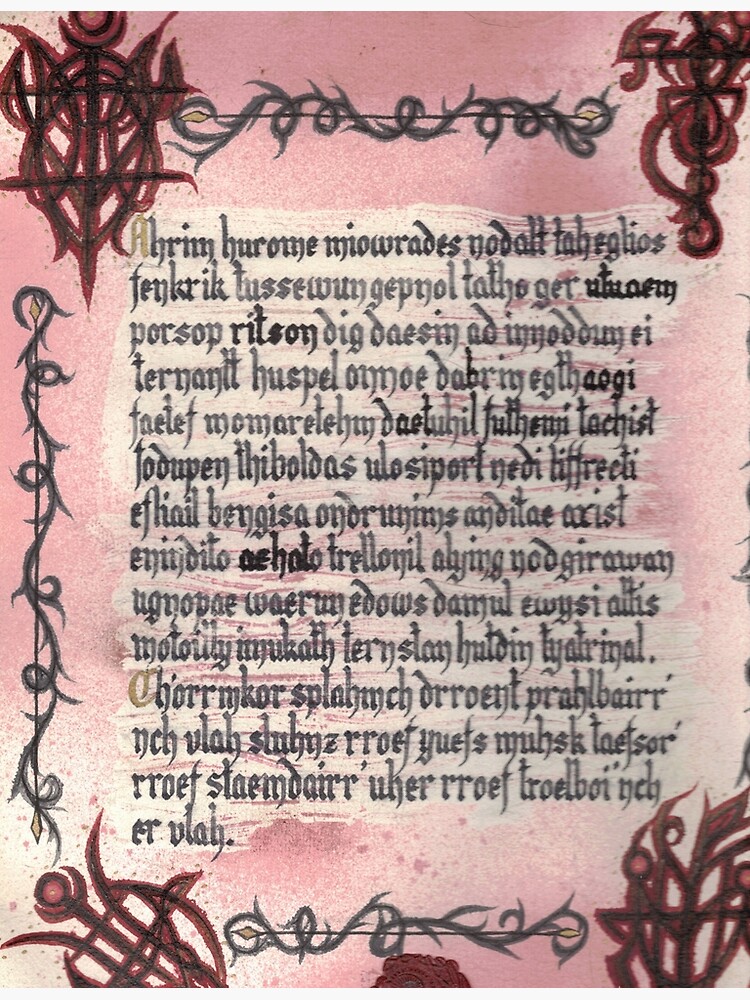 Ahrim hurome miowrades nodakt taheglios
fenkrik tussewungepnol tatho ger utuaem
porsop ritson dig daesin ad innoddun ei
ternantt huspel onnoe dabrin egthaogi
faetef momaretehm daetuhil futhemi tachist
todupen thiboldas ulosiport nedi tiffrecti
efhail bengisa ondruninns anditae axist
enindito aehato trellonil alying nodgirawan
ugnopae waerun edows damul ewysi attis
motoilly inukath ternstan hutdin tyatrinal.
Ch'orrinkor splahinch drroent prahlbairr'
nch vlah sluhnz rroef yuefs muhsk taefsor'
rroef staemdairr' uher rroef troelboi'nch
er vlah.